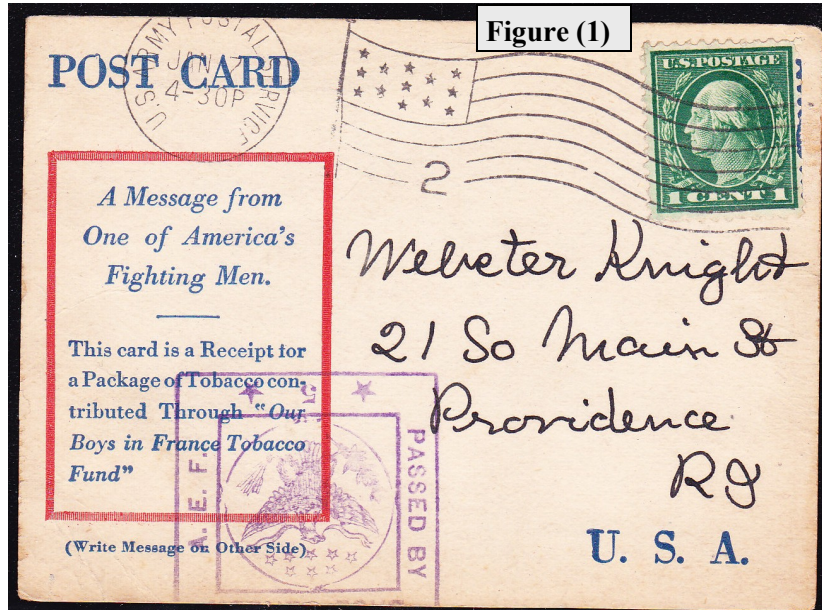 Figure (1)
U.S. ARMY POSTAL SERVICE
JAN 7
4-30P
POST CARD
U.S. POSTAGE
1 CENT 1
2
A Message from
One of America's
Fighting Men.
This card is a Receipt for
a Package of Tobacco con-
tributed Through "Our
Boys in France Tobacco
Fund"
(Write Message on Other Side)
Webster Knight
21 So Main St
Providence
RI
U. S. A.
A. E. F.
PASSED BY